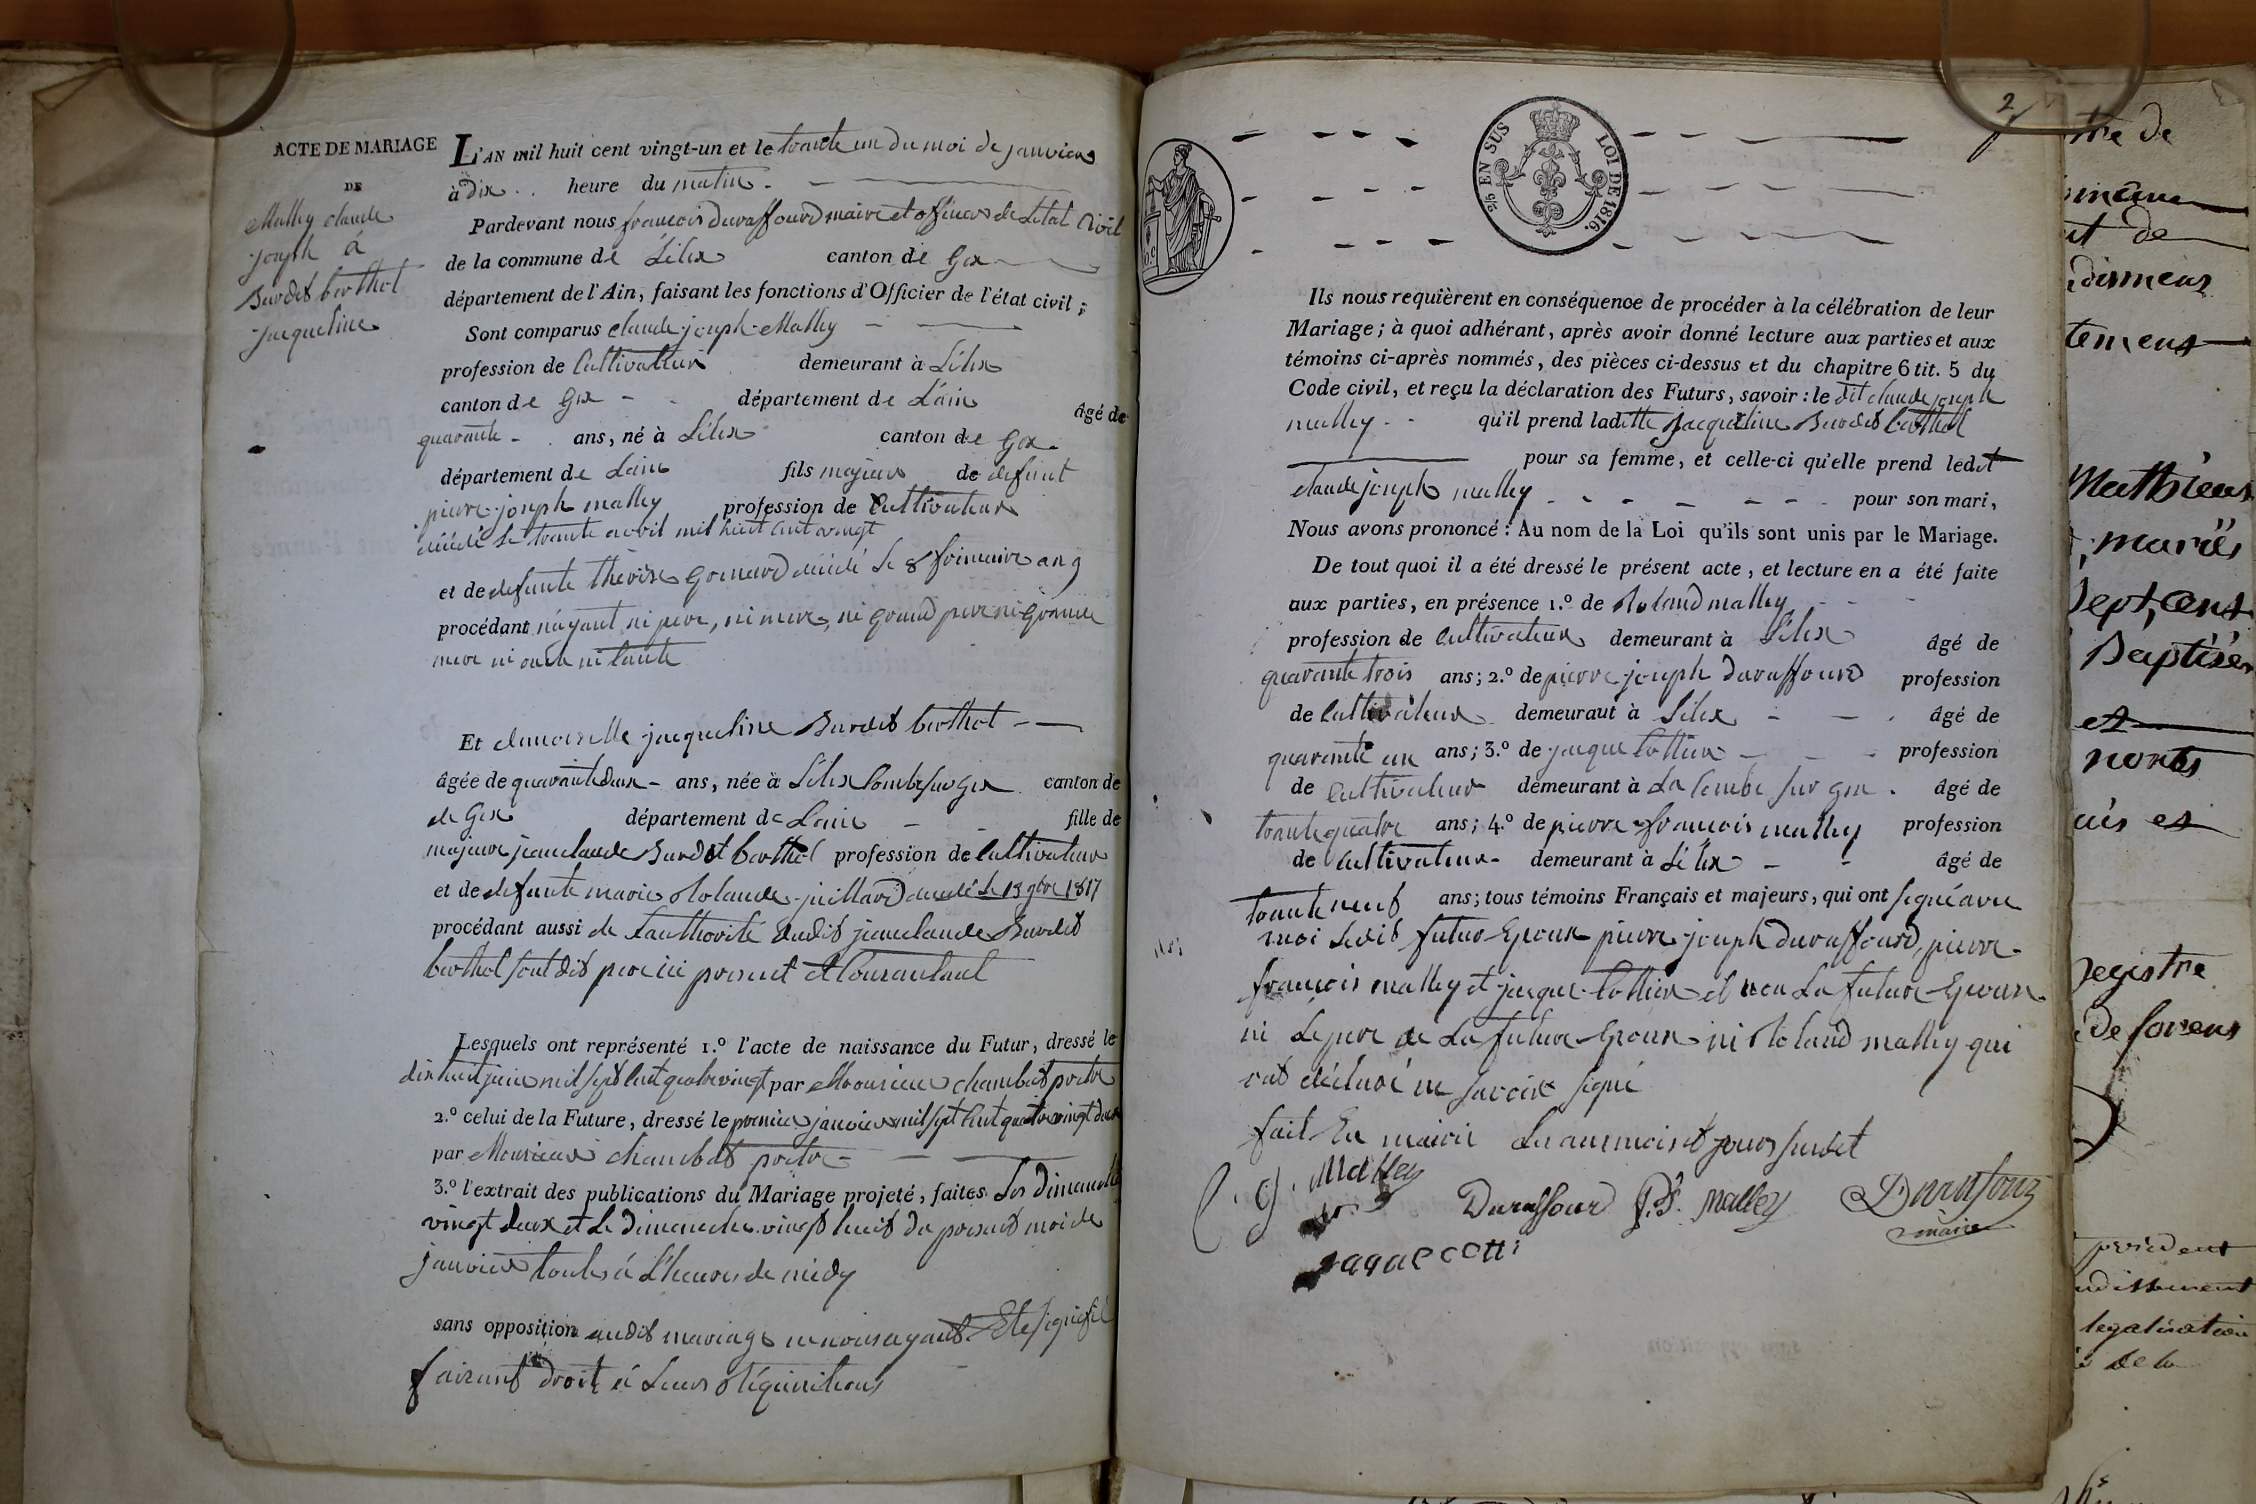 ACTE DE MARIAGE
DE
Malley claude
joseph à
Burdet berthet
jacqueline
L'AN mil huit cent vingt-un et le trante un du moi de janvier
à dix heure du matin
Pardevant nous francois duraffourd maire et officier de Létat Civil
de la commune de Lélex canton de Gex
département de l'Ain, faisant les fonctions d'Officier de l'état civil;
Sont comparus claude joseph Malley
profession de Cultivateur demeurant à Lélex
canton de Gex département de L'ain âgé de
quarante ans, né à Lélex canton de Gex
département de Lain fils majeur de defunt
pierre joseph malley profession de Cultivateur
décédé le trante avril mil huit cent vingt
et de defunte thérèse Gromard décédé le 8 frimaire an 9
procédant n'ayant ni pere, ni mere, ni grand pere ni grande
mere ni oncle ni tante
Et demoiselle jacqueline Burdet berthet
âgée de quarante deux ans, née à Lélex Combe sur gex canton de
de Gex département de Lain fille de
majeure jeanclaude Burdet berthet profession de Cultivateur
et de defunte marie Rolande juillard décédé Le 13 9bre 1817
procédant aussi de Lauthorité dudit jeanclaude Burdet
berthet sont dit pere ici present et Consentant
Lesquels ont représenté 1.º l'acte de naissance du Futur, dressé le
dix huit juin mil sept Cent quatre vingt par Mourieux chambet pretre
2.º celui de la Future, dressé le premier janvier mil sept Cent quatre vingt deux
par Mourieux chambet pretre
3.º l'extrait des publications du Mariage projeté, faites Les dimanche
vingt deux et Le dimanche vingt huit du present moi de
janvier toutes à L'heure de midy
sans opposition audit mariage ne nous ayant Eté signifié
faisant droit à Leurs Réquisitions
2
25 EN SUS LOI DE 1816.
Ils nous requièrent en conséquence de procéder à la célébration de leur
Mariage; à quoi adhérant, après avoir donné lecture aux parties et aux
témoins ci-après nommés, des pièces ci-dessus et du chapitre 6 tit. 5 du
Code civil, et reçu la déclaration des Futurs, savoir: le dit claude joseph
malley qu'il prend ladette jacqueline Burdet berthet
pour sa femme, et celle-ci qu'elle prend ledit
claude joseph malley pour son mari,
Nous avons prononcé: Au nom de la Loi qu'ils sont unis par le Mariage.
De tout quoi il a été dressé le présent acte, et lecture en a été faite
aux parties, en présence 1.º de Roland malley
profession de Cultivateur demeurant à Lélex âgé de
quarante trois ans; 2.º de pierre joseph duraffourd profession
de Cultivateur demeuraut à Lélex âgé de
quarante un ans; 3.º de jacque Cottier profession
de Cultivateur demeurant à La Combe sur gex âgé de
trante quatre ans; 4.º de pierre francois malley profession
de Cultivateur demeurant à Lélex âgé de
trante neuf ans; tous témoins Français et majeurs, qui ont signé avec
moi Ledit futur Epoux pierre joseph duraffourd, pierre
francois malley et jacque Cottier et non La future Epouse
ni Le pere de La future Epouse ni Roland malley qui
ont déclaré ne savoir signé
fait En mairie Les an mois et jours susdit
C. J. Malley
Duraffour P. F. Malley Duraffour
maire
Jaque cotti
tre de
ut de
temens
Mathieu
mariés
sept, cent
Baptisée
et
norts
registre
de forens
président
legalisation
de la